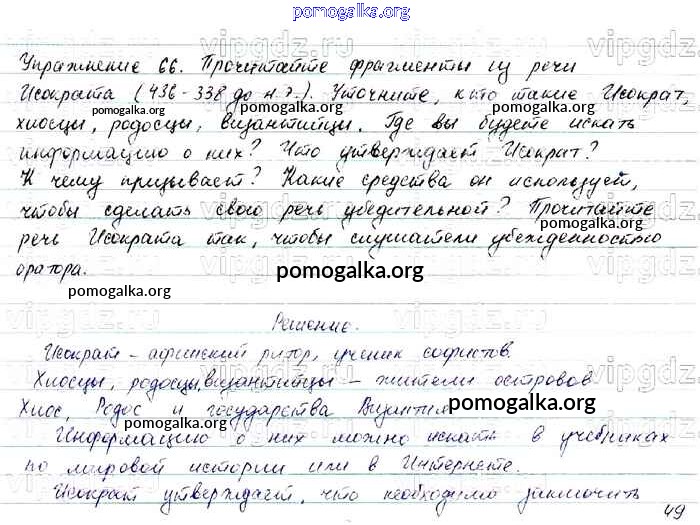 pomogalka.org
Упражнение 66. Прочитайте фрагменты из речи
Исократа (436-338 до н.э.). Уточните, кто такие Исократ,
pomogalka.org
хиосцы, родосцы, византийцы. Где вы будете искать
информацию о них? Что утверждает Исократ?
pomogalka.org
К чему призывает? Какие средства он использует,
чтобы сделать свою речь убедительной? Прочитайте
pomogalka.org
речь Исократа так, чтобы слушатели убежденностью
оратора.
pomogalka.org
pomogalka.org
Решение.
Исократ – афинский ритор, ученик софистов.
Хиосцы, родосцы, византийцы – жители островов
Хиос, Родос и государства Византия
pomogalka.org
pomogalka.org
Информацию о них можно искать в учебниках
по мировой истории или в Интернете.
pomogalka.org
Исократ утверждает, что необходимо заключить
49
vipgdz.ru